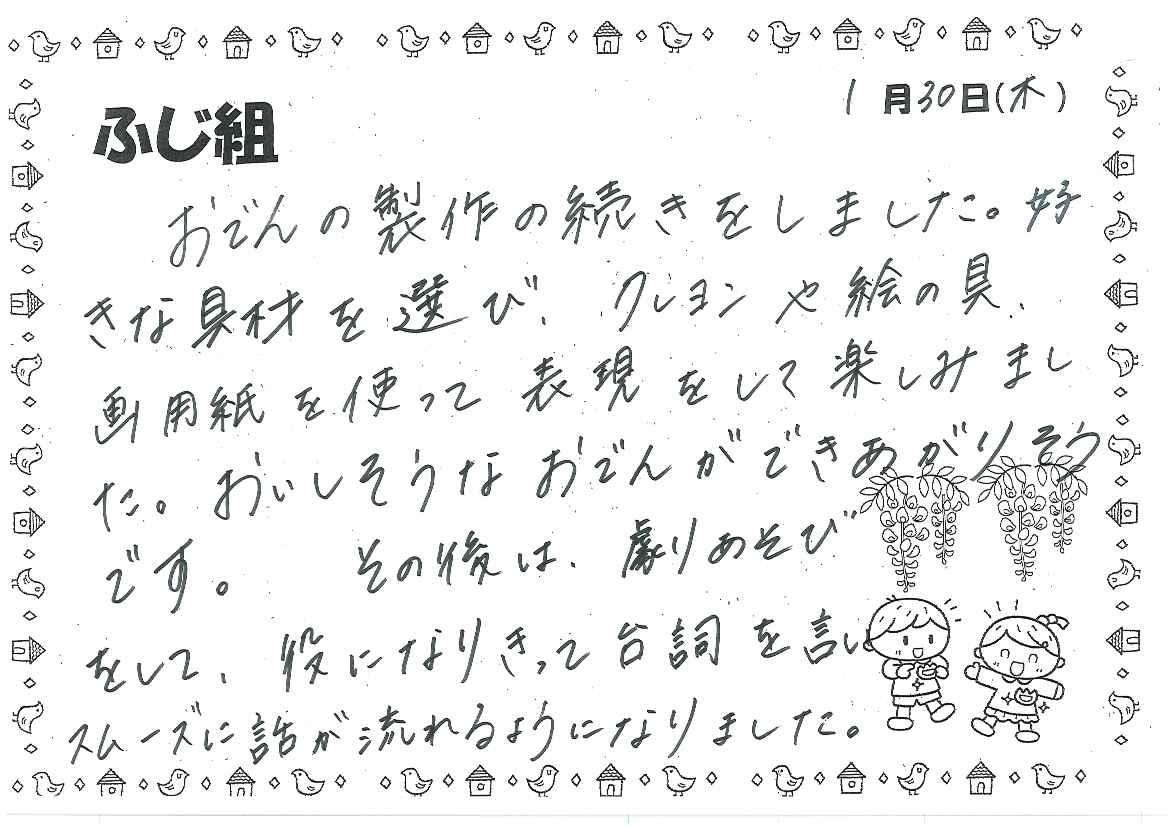 1月30日(木)
ふじ組
おでんの製作の続きをしました。好
きな具材を選び、クレヨンや絵の具、
画用紙を使って表現をして楽しみまし
た。おいしそうなおでんができあがりそう
です。その後は、劇あそび
をして、役になりきって台詞を言い
スムーズに話が流れるようになりました。